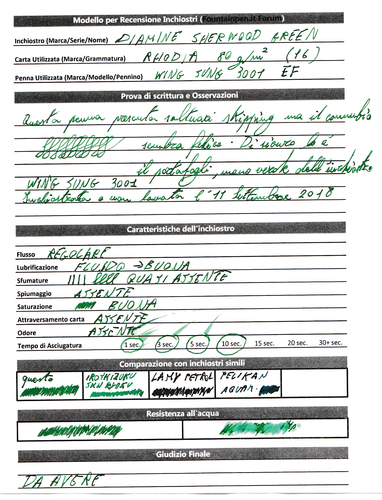 Modello per Recensione Inchiostri (Fountainpen.it Forum)
Inchiostro (Marca/Serie/Nome) DIAMINE SHERWOOD GREEN
Carta Utilizzata (Marca/Grammatura) RHODIA 80 g/m² (16)
Penna Utilizzata (Marca/Modello/Pennino) WING SUNG 3001 EF
Prova di scrittura e Osservazioni
Questa penna presenta saltuari skipping ma il connubio
sembra felice. Di sicuro lo è
il portafoglio, meno verde dell'inchiostro
WING SUNG 3001
Inchiostrata e non lavata l'11 settembre 2018
Caratteristiche dell'inchiostro
Flusso REGOLARE
Lubrificazione FLUIDO → BUONA
Sfumature QUASI ASSENTE
Spiumaggio ASSENTE
Saturazione BUONA
Attraversamento carta ASSENTE
Odore ASSENTE
Tempo di Asciugatura 1 sec. 3 sec. 5 sec. 10 sec. 15 sec. 20 sec. 30+ sec.
Comparazione con inchiostri simili
questo IROSHIZUKU LAMY PETROL PELIKAN
SHIN RYOKU AQUAM.
Resistenza all'acqua
Giudizio Finale
DA AVERE